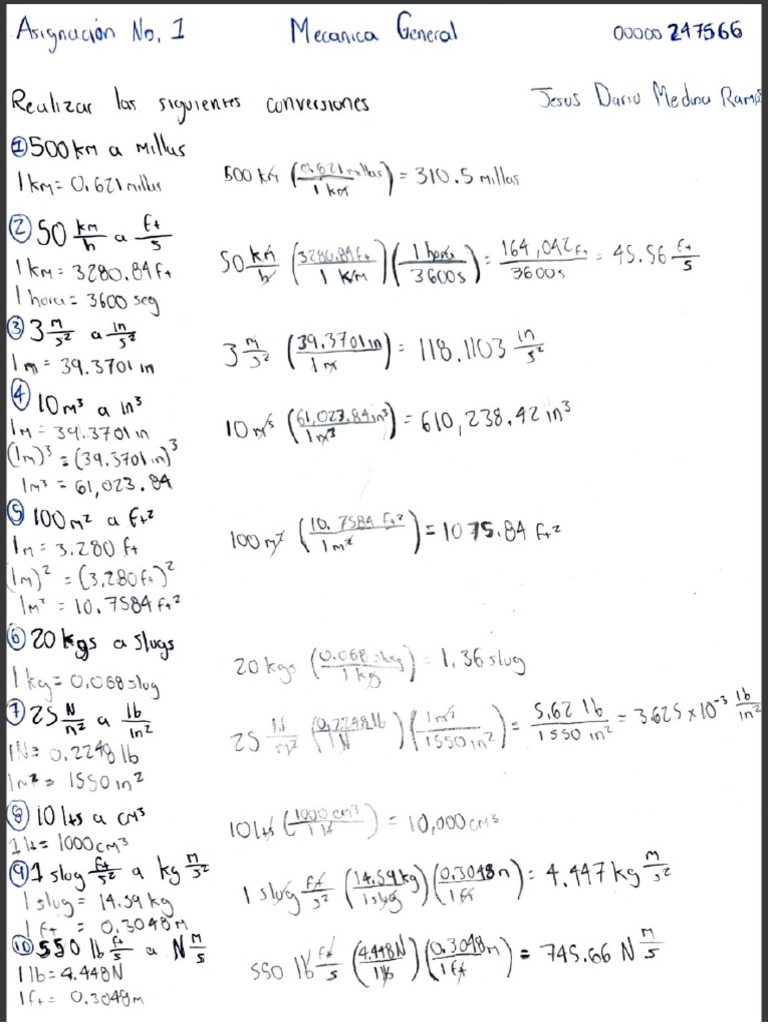 Asignación No. 1 Mecanica General 00000 247566
Realizar las siguientes conversiones Jesus Dario Medina Ramos
① 500 km a Millas
1 km = 0.621 millas 500 km (0.621 millas / 1 km) = 310.5 Millas
② 50 km/h a ft/s
1 km = 3280.84 ft 50 km/h (3280.84 ft / 1 km)(1 hora / 3600 s) = 164,042 ft / 3600 s = 45.56 ft/s
1 hora = 3600 seg
③ 3 m/s² a in/s²
1 m = 39.3701 in 3 m/s² (39.3701 in / 1 m) = 118.1103 in/s²
④ 10 m³ a in³
1 m = 39.3701 in 10 m³ (61,023.84 in³ / 1 m³) = 610,238.42 in³
(1m)³ = (39.3701 in)³
1m³ = 61,023.84
⑤ 100 m² a ft²
1m = 3.280 ft 100 m² (10.7584 ft² / 1 m²) = 1075.84 ft²
(1m)² = (3.280 ft)²
1m² = 10.7584 ft²
⑥ 20 kgs a slugs
1 kg = 0.068 slug 20 kgs (0.068 slug / 1 kg) = 1.36 slug
⑦ 25 N/m² a lb/in²
1N = 0.2248 lb 25 N/m² (0.2248 lb / 1N)(1m² / 1550 in²) = 5.62 lb / 1550 in² = 3.625 x 10⁻³ lb/in²
1m² = 1550 in²
⑧ 10 lts a cm³
1 lt = 1000 cm³ 10 lts (1000 cm³ / 1 lt) = 10,000 cm³
⑨ 1 slog ft/s² a kg m/s²
1 slug = 14.59 kg 1 slug ft/s² (14.59 kg / 1 slug)(0.3048 m / 1 ft) = 4.447 kg m/s²
1 ft = 0.3048 m
⑩ 550 lb ft/s a N m/s
1 lb = 4.448 N 550 lb ft/s (4.448 N / 1 lb)(0.3048 m / 1 ft) = 745.66 N m/s
1 ft = 0.3048m